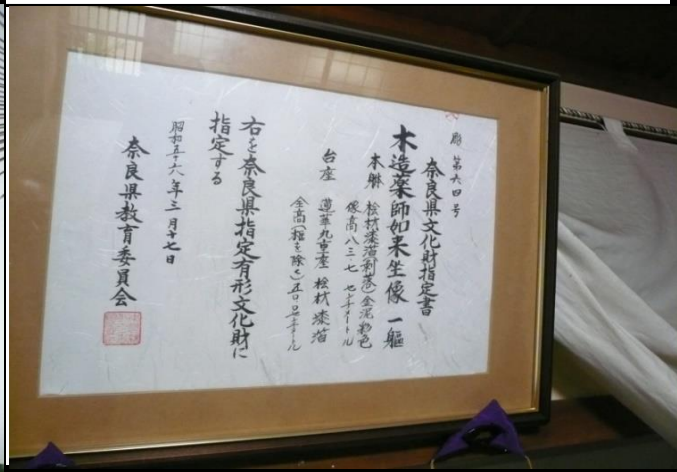 彫第六四号
奈良県文化財指定書
木造薬師如来坐像 一軀
本躰 桧材漆箔(剥落)金泥彩色
像高八三・七 センチメートル
台座 蓮華九重座 桧材 漆箔
全高(框を除く)五〇・五センチメートル
右を奈良県指定有形文化財に
指定する
昭和五十六年三月十七日
奈良県教育委員会